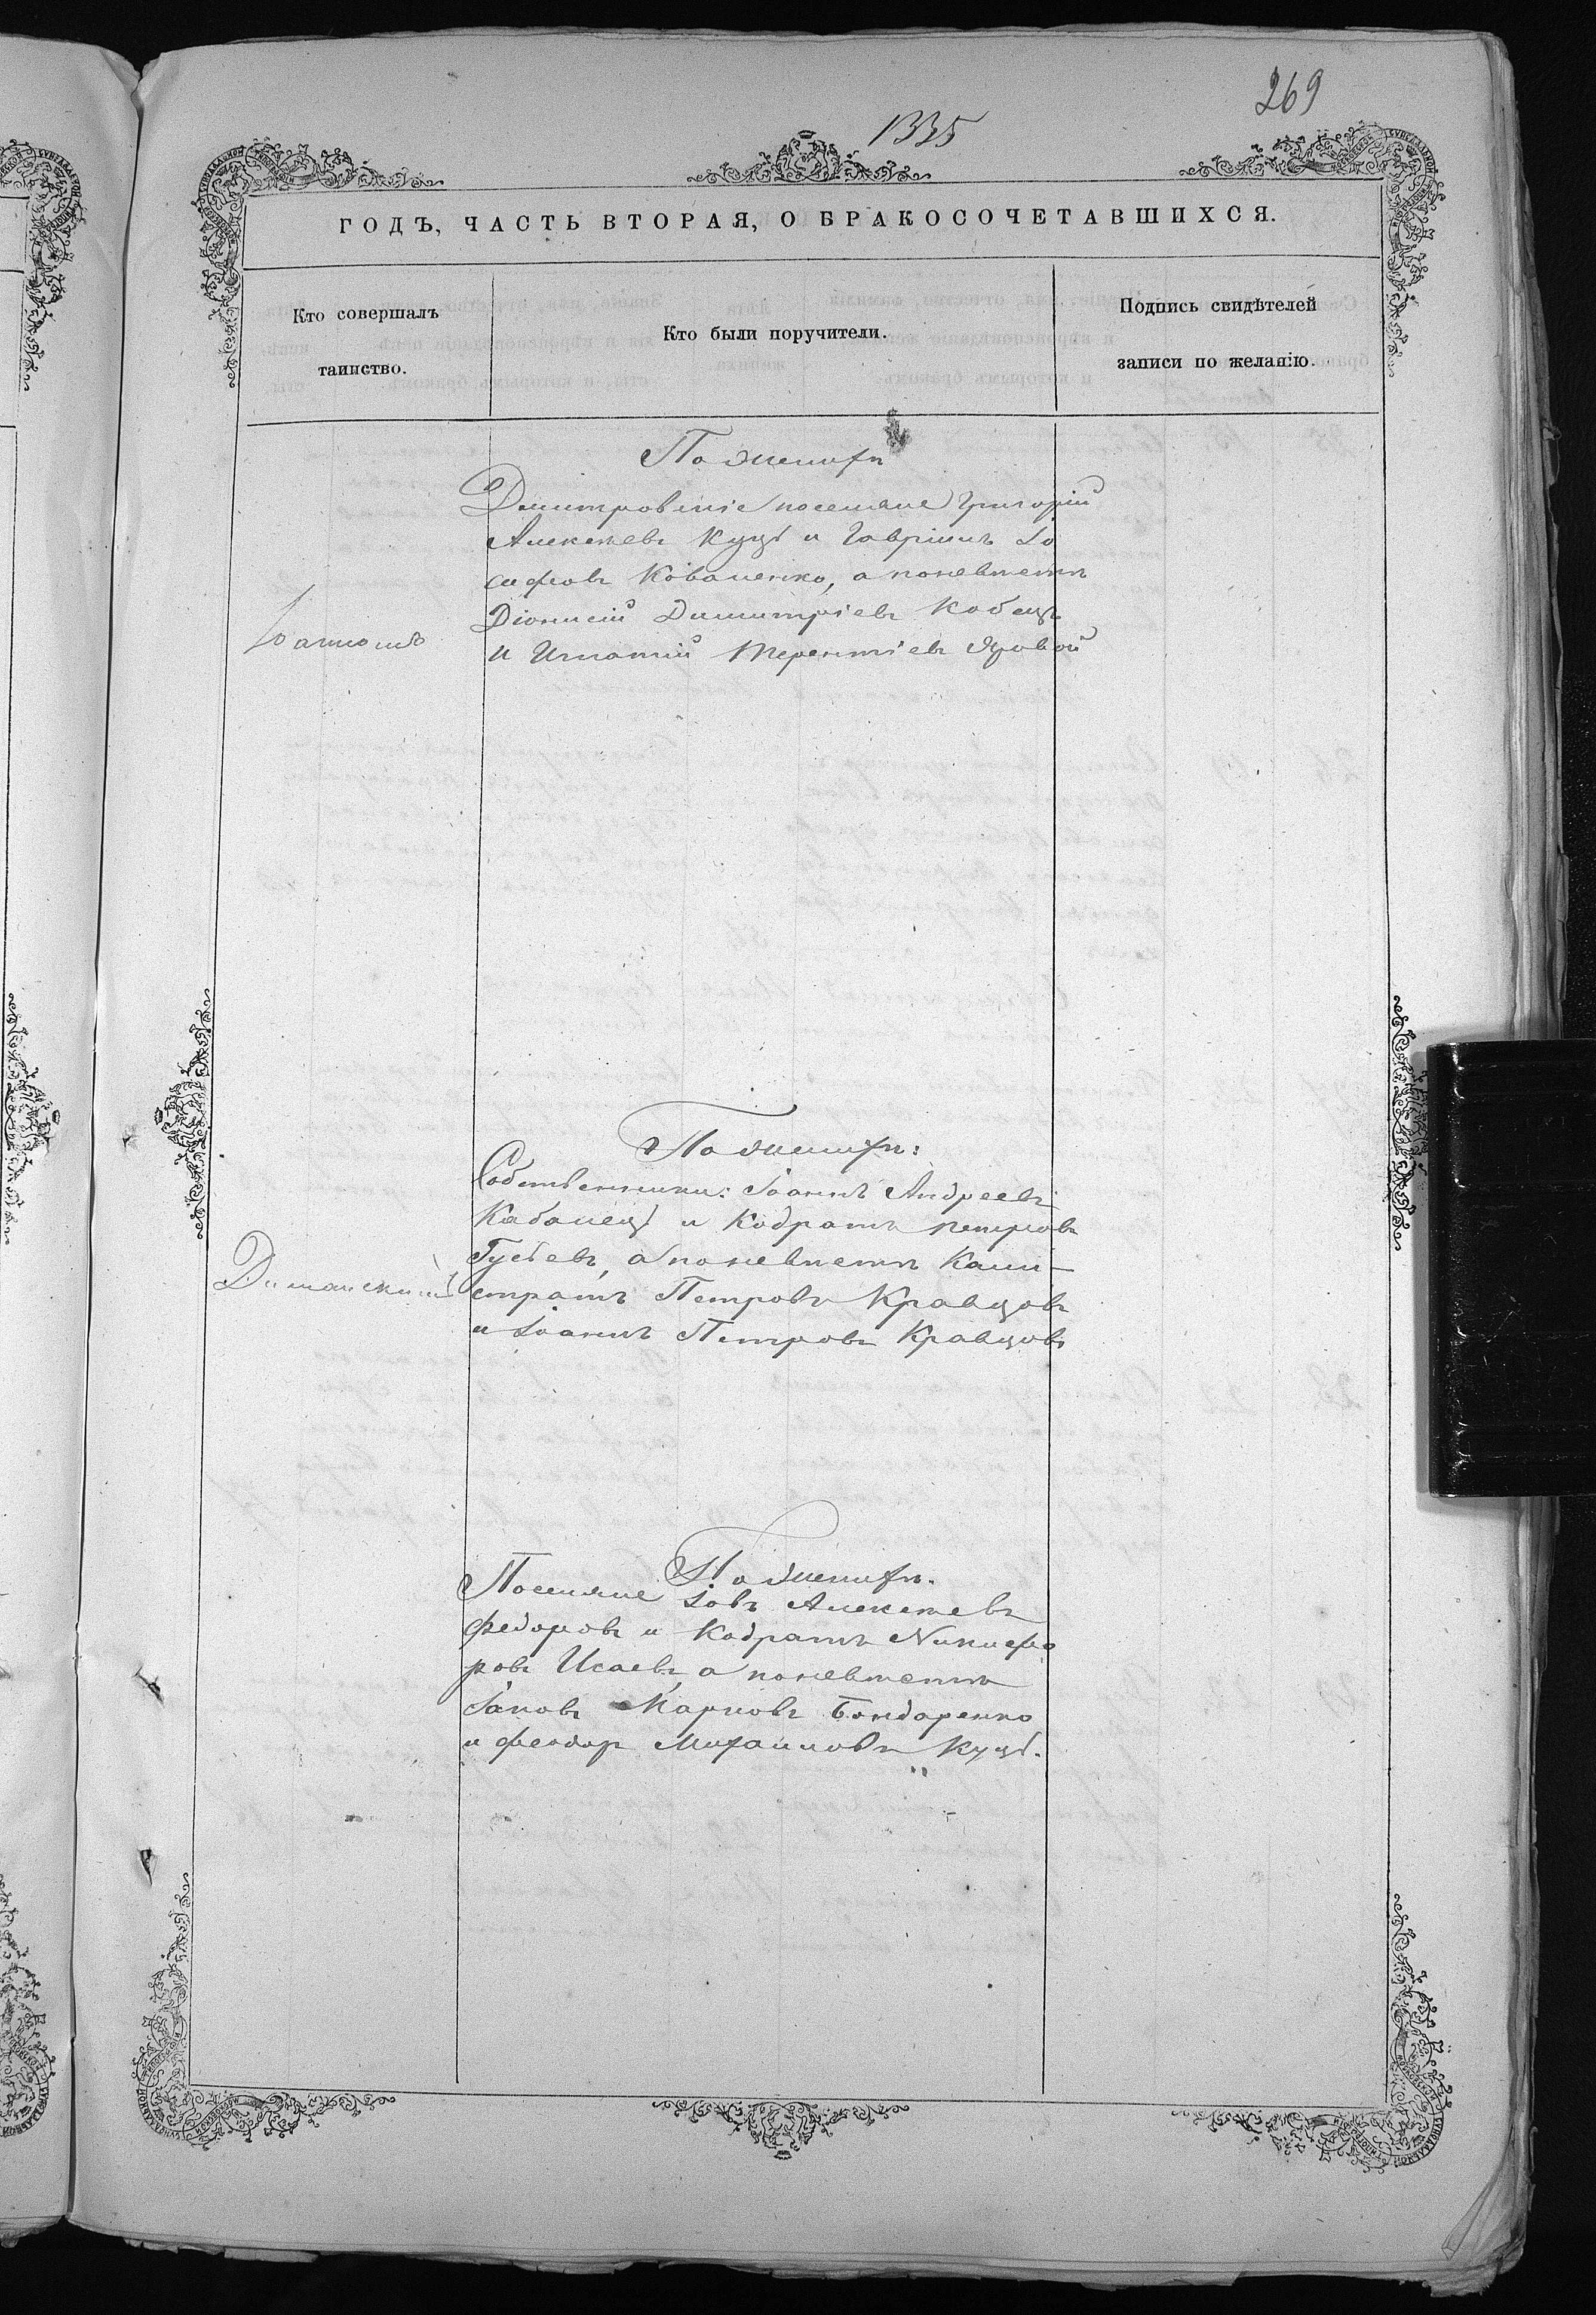 269
1335
ГОДЪ, ЧАСТЬ ВТОРАЯ, О БРАКОСОЧЕТАВШИХСЯ.
Кто совершалъ
таинство.
Кто были поручители.
Подпись свидѣтелей
записи по желанію.
По женихѣ
Дмитровскіе поселяне Григорій
Алексѣевъ Куцъ и Гавріилъ Іо
сифовъ Коваленко, а по невѣстѣ
Діонисій Димитріевъ Кобецъ
и Игнатій Терентіевъ Яровой
По женихѣ:
Собственники: Іоаннъ Андреевъ
Кабанецъ и Кодратъ Петровъ
Гусевъ, а по невѣстѣ Кали-
стратъ Петровъ Кравцовъ
и Іоаннъ Петровъ Кравцовъ
По женихѣ.
Поселяне Іовъ Алексѣевъ
Федоровъ и Кодратъ Никифо
ровъ Исаевъ, а по невѣстѣ
Іаковъ Карповъ Бондаренко
и Феодор Михаиловъ Куцъ.